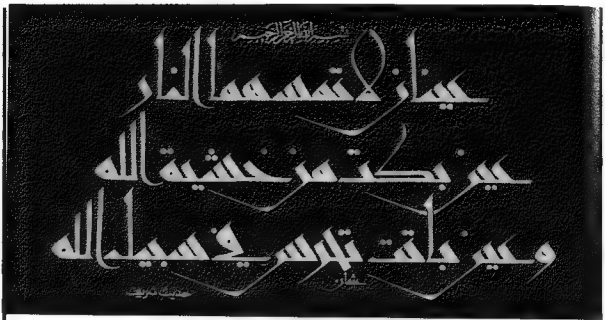 بسم الله الرحمن الرحيم
عينان لا تمسهما النار
عين بكت من خشية الله
وعين باتت تحرس في سبيل الله
حديث شريف